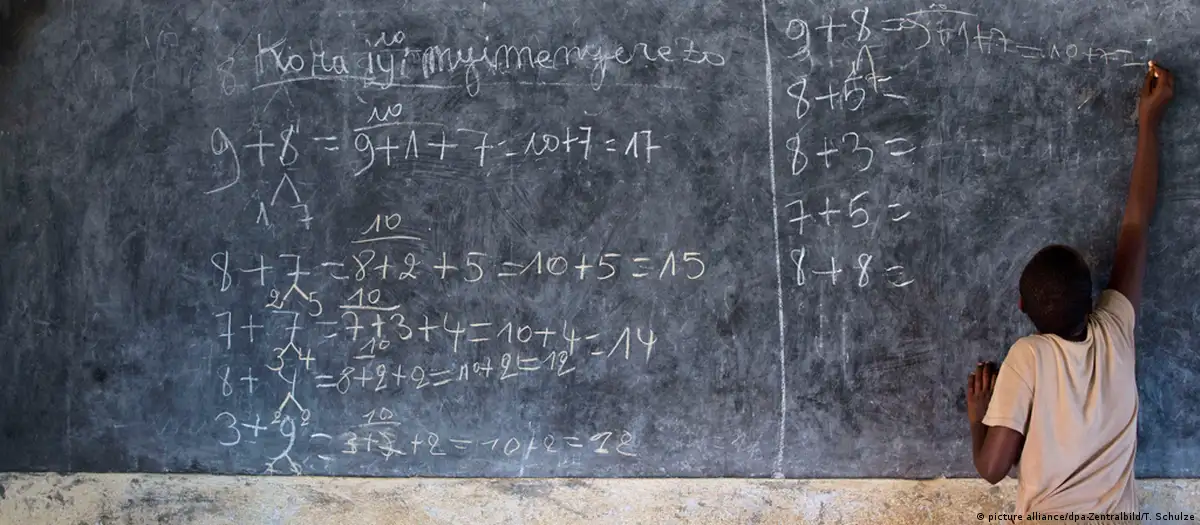 Kora iyi myimenyerezo
10
9+8 = 9+1+7=10+7=17
1 7
10
8+7=8+2+5=10+5=15
2 5
10
7+7=7+3+4=10+4=14
3 4
10
8+4=8+2+2=10+2=12
2 2
10
3+9= +2=10+2=
10
9+8=9+1+7=10+7=
1 7
8+5=
8+3=
7+5=
8+8=
© picture alliance/dpa-Zentralbild/T. Schulze